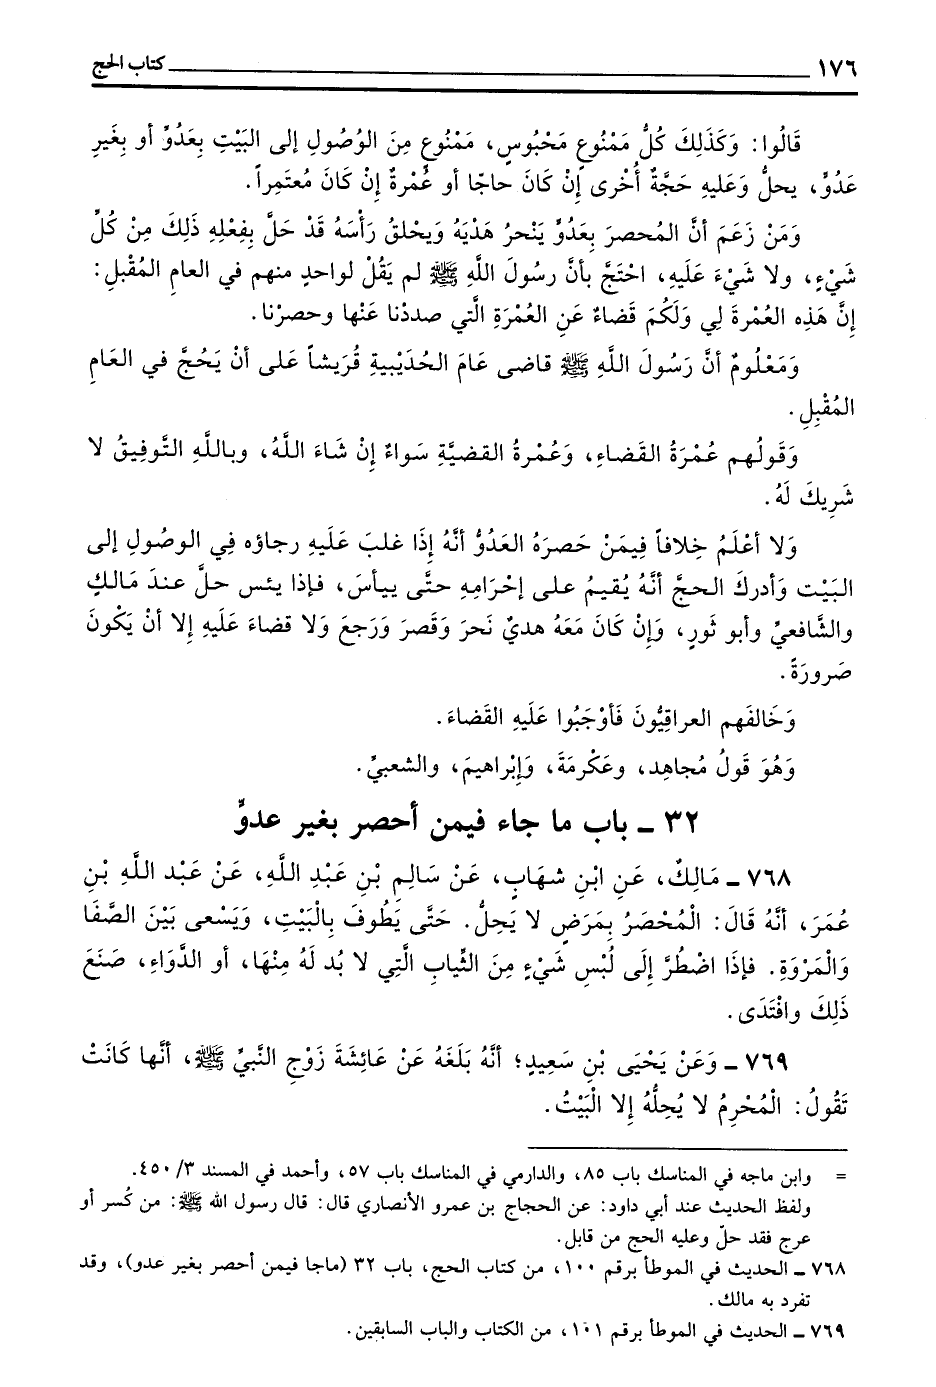 ١٧٦ كتاب الحج
قَالُوا: وَكَذَلِكَ كُلُّ مَمْنُوعٍ مَحْبُوسٍ، مَمْنُوعٍ مِنَ الوُصُولِ إلى البَيْتِ بِعَدُوٍّ أو بِغَيرِ
عَدُوٍّ، يحلُّ وَعَليهِ حَجَّةٌ أُخْرى إنْ كَانَ حاجًا أو عُمْرةٌ إنْ كَانَ مُعتَمِراً.
وَمَنْ زَعَمَ أنَّ المُحصرَ بِعَدُوٍّ يَنْحرُ هَدْيَهُ وَيحْلقُ رَأْسَهُ قَدْ حَلَّ بِفِعْلِهِ ذَلِكَ مِنْ كُلِّ
شَيْءٍ، ولا شَيْءَ عَلَيهِ، احتَجَّ بأنَّ رسُولَ اللَّهِ ﷺ لم يَقُلْ لواحدٍ منهم في العامِ المُقْبلِ:
إنَّ هَذِهِ العُمْرةَ لِي وَلَكُمَ قَضاءٌ عَنِ العُمْرَةِ الَّتي صددْنا عَنْها وحصرْنا.
وَمَعْلُومٌ أنَّ رَسُولَ اللَّهِ ﷺ قاضى عَامَ الحُدَيْبيةِ قُرَيشاً عَلى أنْ يَحُجَّ في العَامِ
المُقْبِلِ.
وَقَولُهم عُمْرَةُ القَضاءِ، وَعُمْرةُ القضيَّةِ سَواءٌ إنْ شَاءَ اللَّهُ، وباللَّهِ التَّوفيقُ لا
شَرِيكَ لَهُ.
وَلا أعْلَمُ خِلافاً فِيمَنْ حَصرَهُ العَدُوُّ أنَّهُ إذَا غلبَ عَلَيهِ رجاؤه فِي الوصُولِ إلى
البَيْت وَأدركَ الحجَّ أنَّهُ يُقيمُ على إحْرامِهِ حتَّى ييأسَ، فإذا يئس حلَّ عندَ مَالكٍ
والشَّافعيِّ وأبو ثَورٍ، وَإِنْ كَانَ مَعَهُ هديٌ نَحرَ وَقَصرَ وَرَجعَ وَلا قضاءَ عَلَيهِ إلا أنْ يَكُونَ
صَرورَةً.
وَخَالفَهم العراقيُّونَ فَأوْجَبُوا عَلَيهِ القَضاءَ.
وَهُوَ قَولُ مُجاهِد، وعَكْرمَةَ، وَإبْراهيمَ، والشعبيِّ.
٣٢ ـ باب ما جاء فيمن أحصر بغير عدوٍّ
٧٦٨ ـ مَالِكٌ، عَنِ ابْنِ شهَابٍ، عَنْ سَالِمِ بْنِ عَبْدِ اللَّهِ، عَنْ عَبْد اللَّهِ بْنِ
عُمَرَ، أنَّهُ قَالَ: الْمُحْصَرُ بِمَرَضٍ لا يَحِلُّ. حَتَّى يَطُوفَ بِالْبَيْتِ، وَيَسْعى بَيْنَ الصَّفَا
وَالْمَرْوَةِ. فإذَا اضْطُرَّ إِلَى لُبْسِ شَيْءٍ مِنَ الثِّيابِ الَّتِي لا بُد لَهُ مِنْهَا، أو الدَّوَاءِ، صَنَعَ
ذَلِكَ وافْتَدَى.
٧٦٩ ـ وَعَنْ يَحْيَى بْنِ سَعِيدٍ؛ أنَّهُ بَلَغَهُ عَنْ عَائِشَةَ زَوْجِ النَّبيِّ ﷺ، أنَّها كَانَتْ
تَقُولُ: الْمُحْرِمُ لا يُحِلُّهُ إلا الْبَيْتُ.
= وابن ماجه في المناسك باب ٨٥، والدارمي في المناسك باب ٥٧، وأحمد في المسند ٣/ ٤٥٠.
ولفظ الحديث عند أبي داود: عن الحجاج بن عمرو الأنصاري قال: قال رسول الله ﷺ: من كُسر أو
عرج فقد حلّ وعليه الحج من قابل.
٧٦٨ ـ الحديث في الموطأ برقم ١٠٠، من كتاب الحج، باب ٣٢ (ماجا فيمن أحصر بغير عدو)، وقد
تفرد به مالك.
٧٦٩ ـ الحديث في الموطأ برقم ١٠١، من الكتاب والباب السابقين.